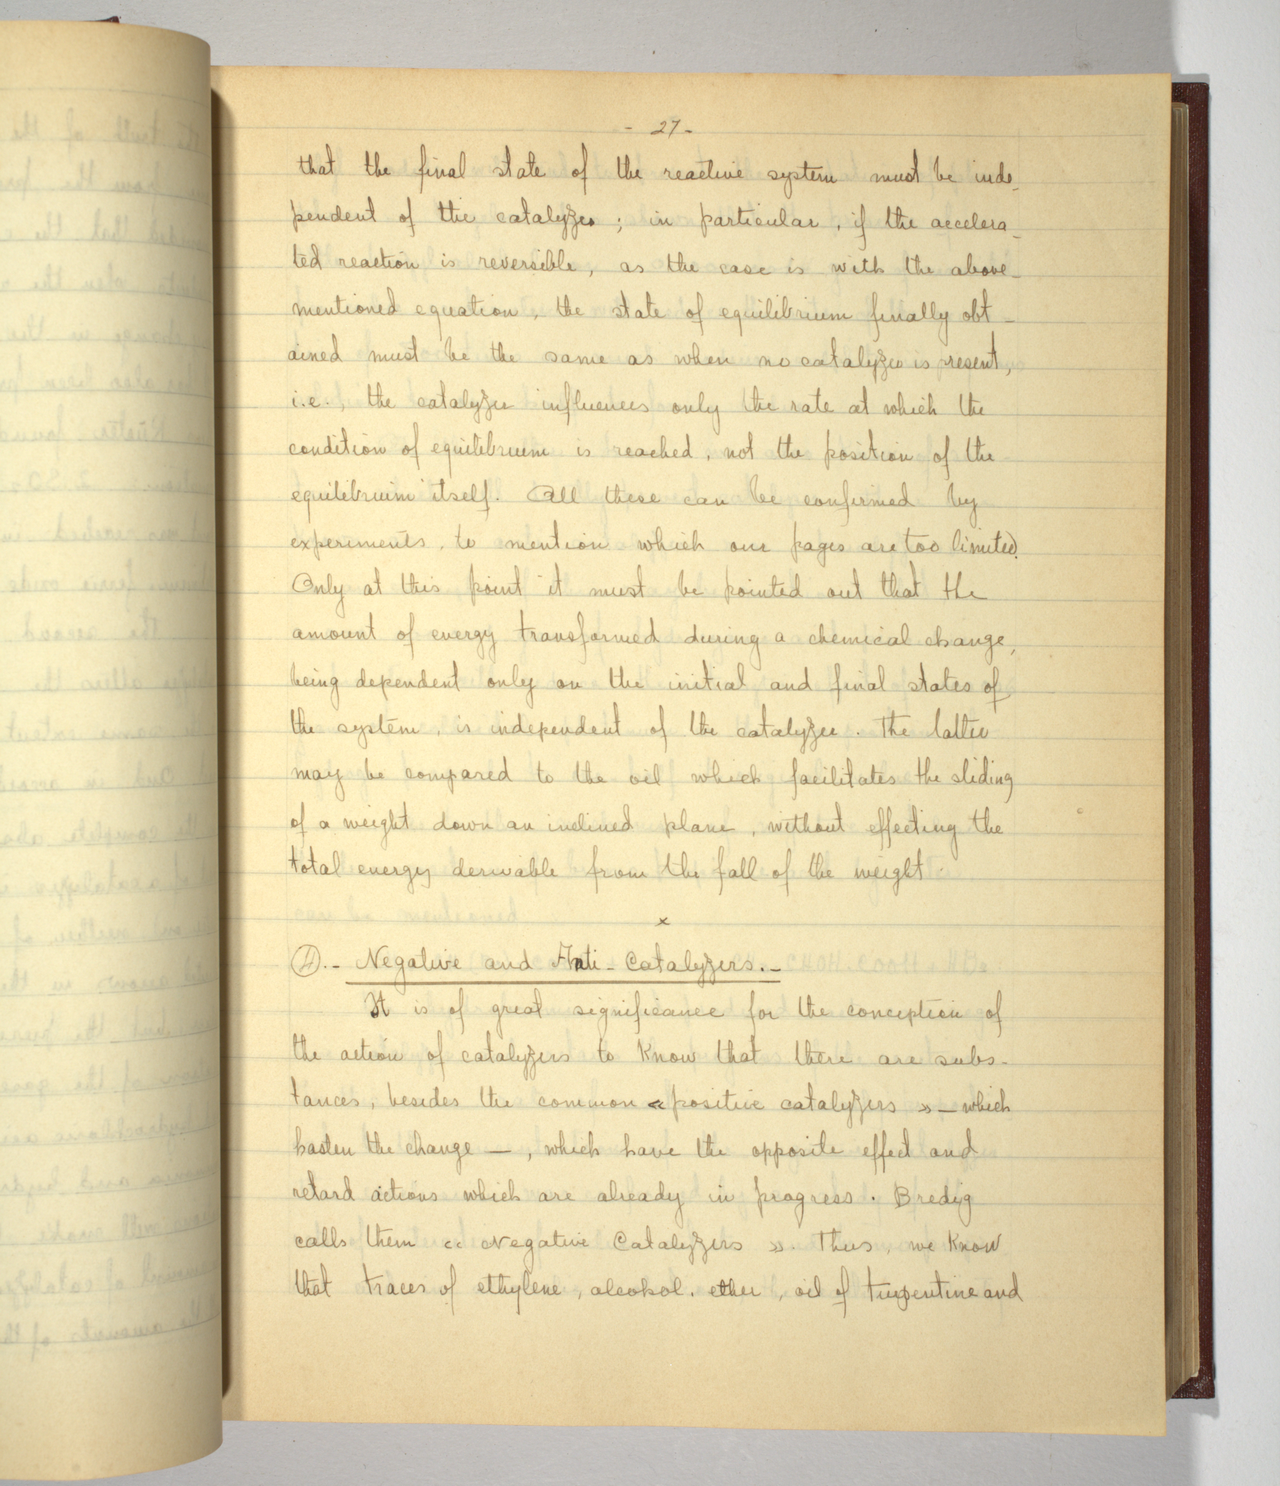 - 27 -
that the final state of the reactive system must be inde-
pendent of the catalyzer ; in particular , if the accelera-
ted reaction is reversible, as the case is with the above-
mentioned equation , the state of equilibrium finally obt-
ained must be the same as when no catalyzer is resent,
i.e., the catalyzer influences only the rate at which the
condition of equilibrium is reached , not the position of the
equilibrium itself. All these can be confirmed by
experiments , to mention which our pages are too limited.
Only at this point it must be pointed out that the
amount of energy transformed during a chemical change,
being dependent only on the initial and final states of
the system , is independent of the catalyzer . The latter
may be compared to the oil which facilitates the sliding
of a weight down an inclined plane , without effecting the
total energy derivable from the fall of the weight .
x
4).- Negative and Anti-Catalyzers.-
It is of great significance for the conception of
the action of catalyzers to know that there are subs-
tances, besides the common « positive catalyzers » — which
hasten the change — , which have the opposite effect and
retard actions which are already in progress . Bredig
calls them « Negative Catalyzers ». Thus, we know
that traces of ethylene , alcohol , ether , oil of turpentine and